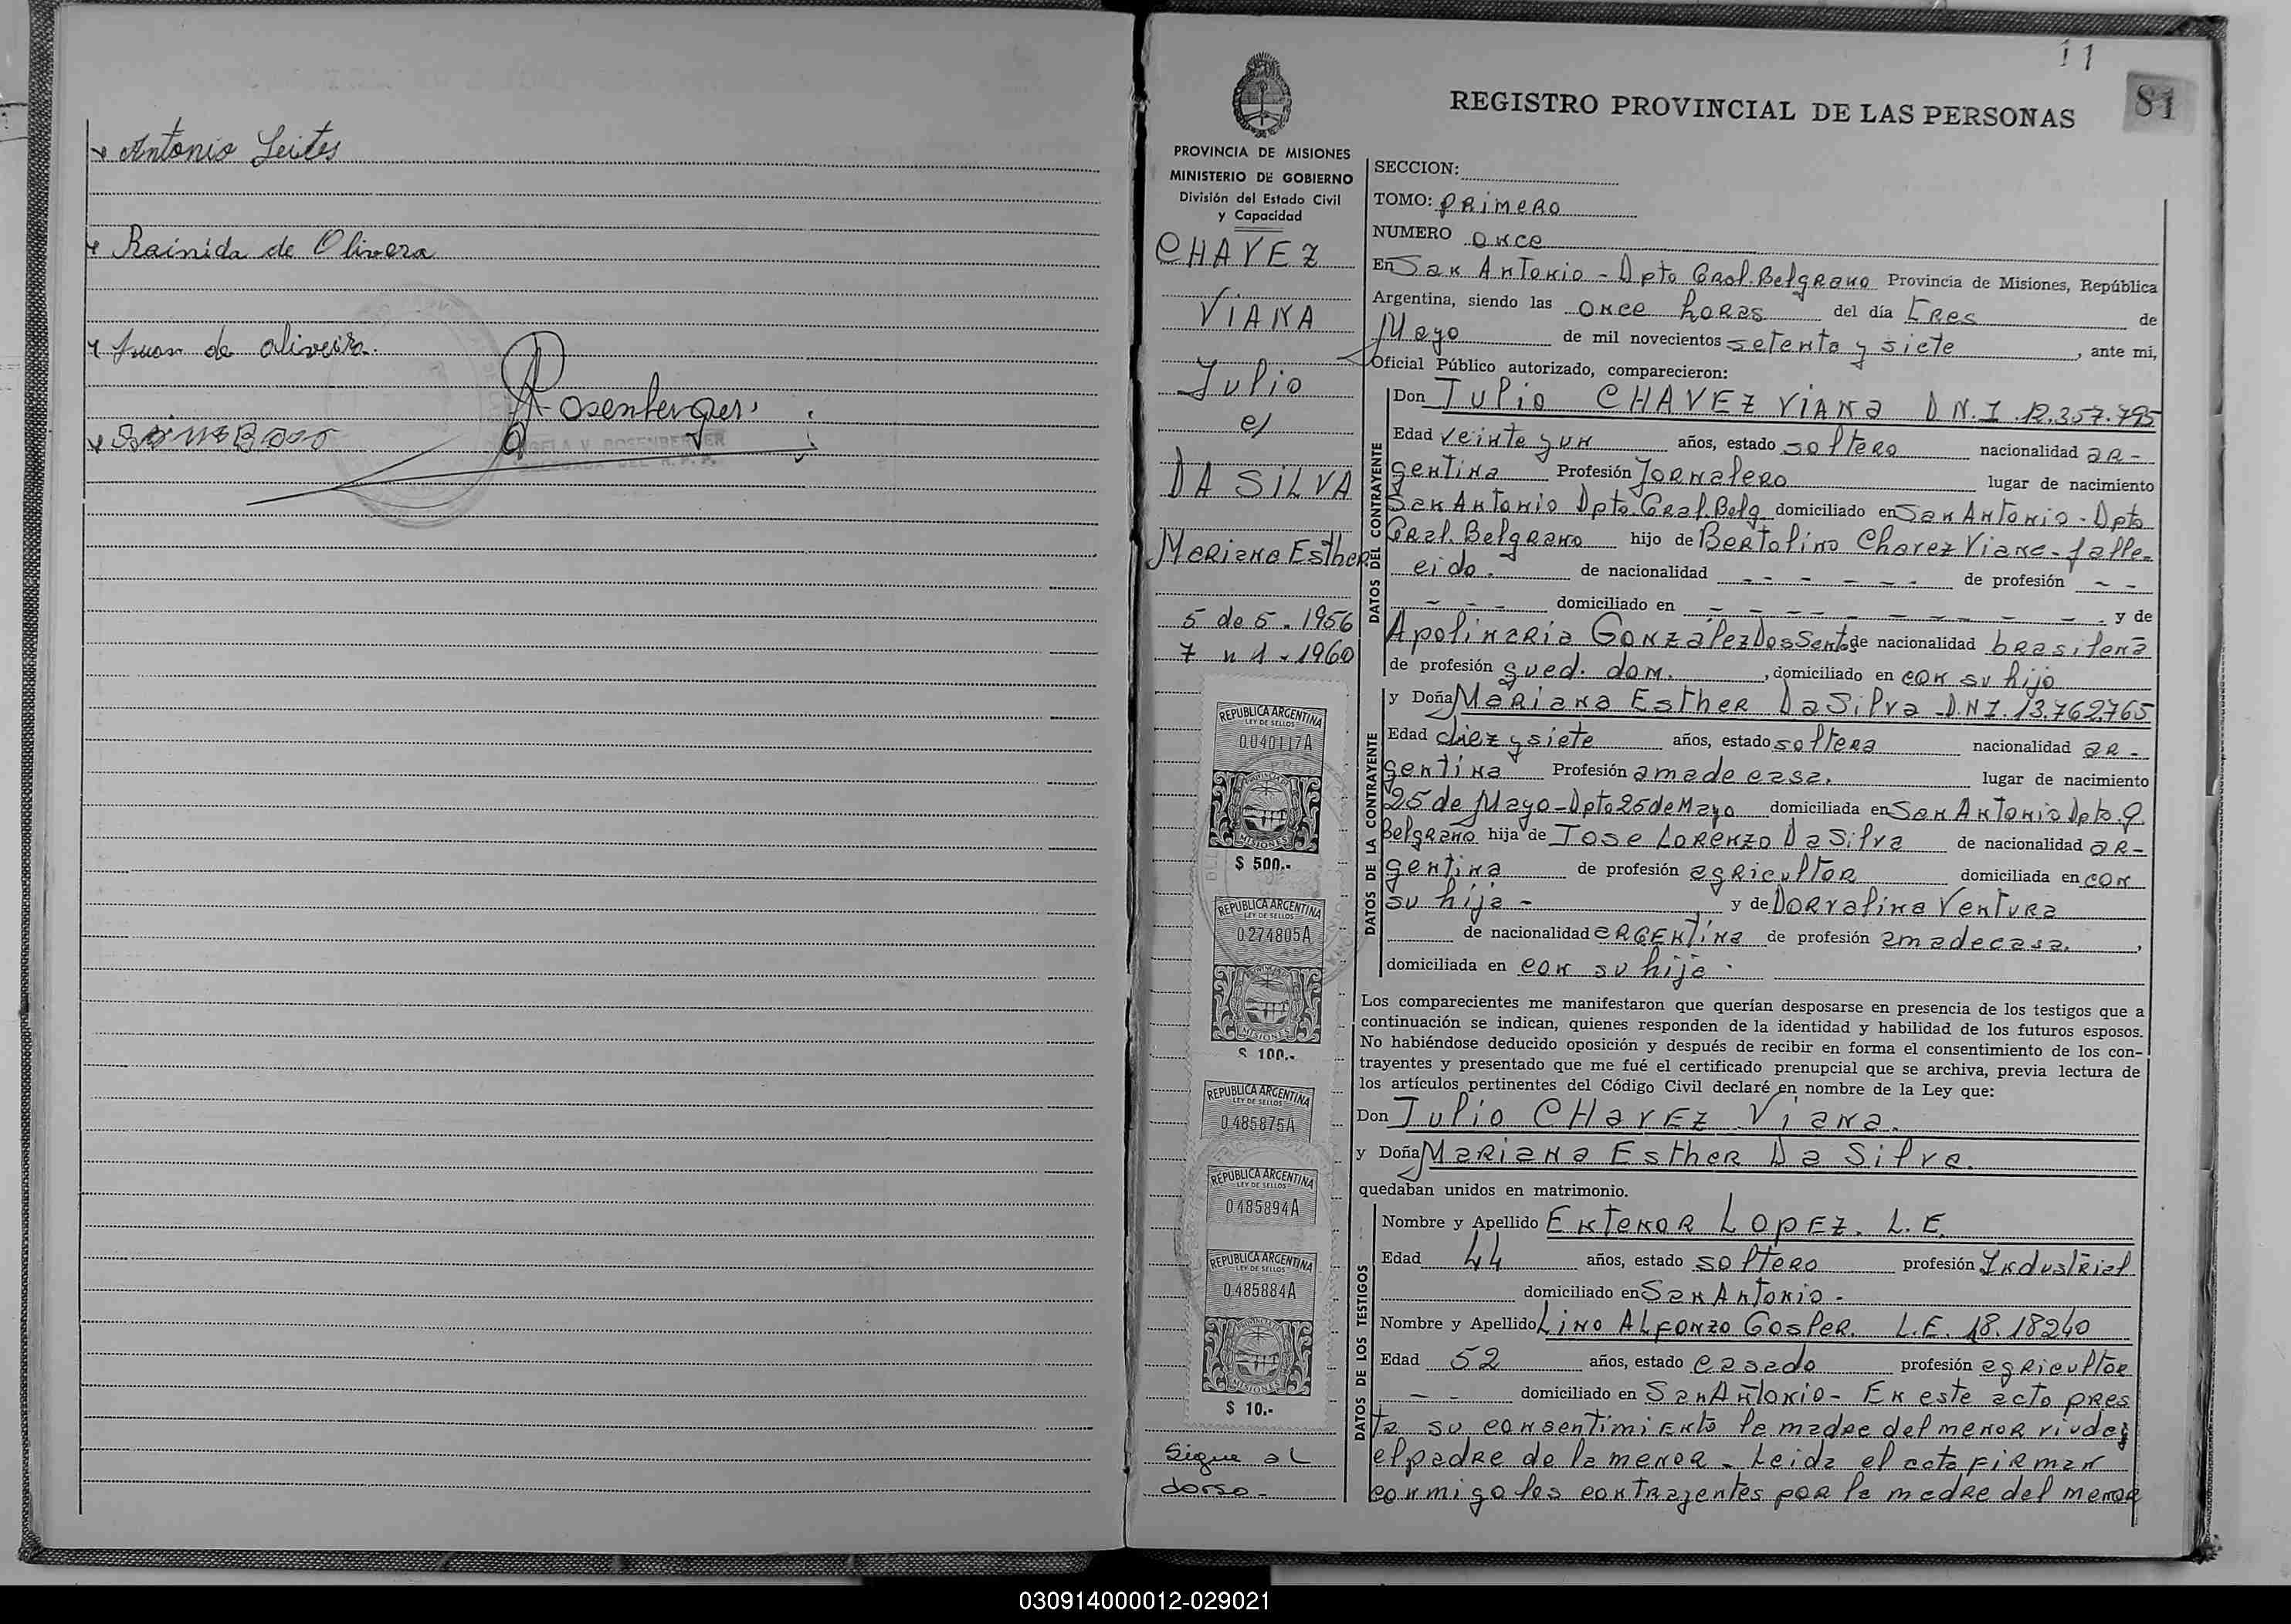 Antonio Leites
Rainida de Olivera
Juan de oliveira.
Rosenberger
ANGELA V. ROSENBERGER
DELEGADA DEL R. P. P.
11
81
REGISTRO PROVINCIAL DE LAS PERSONAS
PROVINCIA DE MISIONES
MINISTERIO DE GOBIERNO
División del Estado Civil
y Capacidad
CHAVEZ
VIANA
Julio
c/
DA SILVA
Mariana Esther
5 de 5 . 1956
7 " 1 . 1960
REPUBLICA ARGENTINA
LEY DE SELLOS
0.040117A
MISIONES
$ 500.-
REPUBLICA ARGENTINA
LEY DE SELLOS
0.274805A
MISIONES
$ 100.-
REPUBLICA ARGENTINA
LEY DE SELLOS
0.485875A
REPUBLICA ARGENTINA
LEY DE SELLOS
0.485894A
REPUBLICA ARGENTINA
LEY DE SELLOS
0.485884A
MISIONES
$ 10.-
Sigue al
dorso -
SECCION:
TOMO: PRimeRO
NUMERO once
En San Antonio - Dpto Gral. Belgrano Provincia de Misiones, República
Argentina, siendo las once horas del día tres de
Mayo de mil novecientos setenta y siete, ante mi,
Oficial Público autorizado, comparecieron:
DATOS DEL CONTRAYENTE
Don Julio CHAVEZ VIANA D N.I. 12.357.795
Edad veinte y un años, estado soltero nacionalidad ar-
gentina Profesión Jornalero lugar de nacimiento
San Antonio Dpto. Gral. Belg. domiciliado en San Antonio - Dpto
Gral. Belgrano hijo de Bertolino Chavez Viana - falle-
cido. de nacionalidad - - - - - - de profesión - -
- - - domiciliado en - - - - - - - - - y de
Apolinaria Gonzalez Dos Santos de nacionalidad brasilena
de profesión qued. dom., domiciliado en con su hijo
DATOS DE LA CONTRAYENTE
y Doña Mariana Esther Da Silva - D.N.I. 13.762.765
Edad diez y siete años, estado soltera nacionalidad ar-
gentina Profesión ama de casa. lugar de nacimiento
25 de Mayo - Dpto 25 de Mayo domiciliada en San Antonio Dpto. G.
Belgrano hija de Jose Lorenzo Da Silva de nacionalidad ar-
gentina de profesión agricultor domiciliada en con
su hija - y de Dorvalina Ventura
de nacionalidad argentina de profesión ama de casa.,
domiciliada en con su hija .
Los comparecientes me manifestaron que querían desposarse en presencia de los testigos que a
continuación se indican, quienes responden de la identidad y habilidad de los futuros esposos.
No habiéndose deducido oposición y después de recibir en forma el consentimiento de los con-
trayentes y presentado que me fué el certificado prenupcial que se archiva, previa lectura de
los artículos pertinentes del Código Civil declaré en nombre de la Ley que:
Don Julio CHAVEZ Viana.
y Doña Mariana Esther Da Silva.
quedaban unidos en matrimonio.
DATOS DE LOS TESTIGOS
Nombre y Apellido Entenor Lopez. L.E.
Edad 44 años, estado soltero profesión Industrial
domiciliado en San Antonio -
Nombre y Apellido Lino Alfonzo Gosler. L.E. 18.18240
Edad 52 años, estado casado profesión agricultor
- - domiciliado en San Antonio - En este acto pres
ta su consentimiento la madre del menor viuda y
el padre de la menor - Leida el acta firman
conmigo los contrayentes por la madre del menor
030914000012-029021